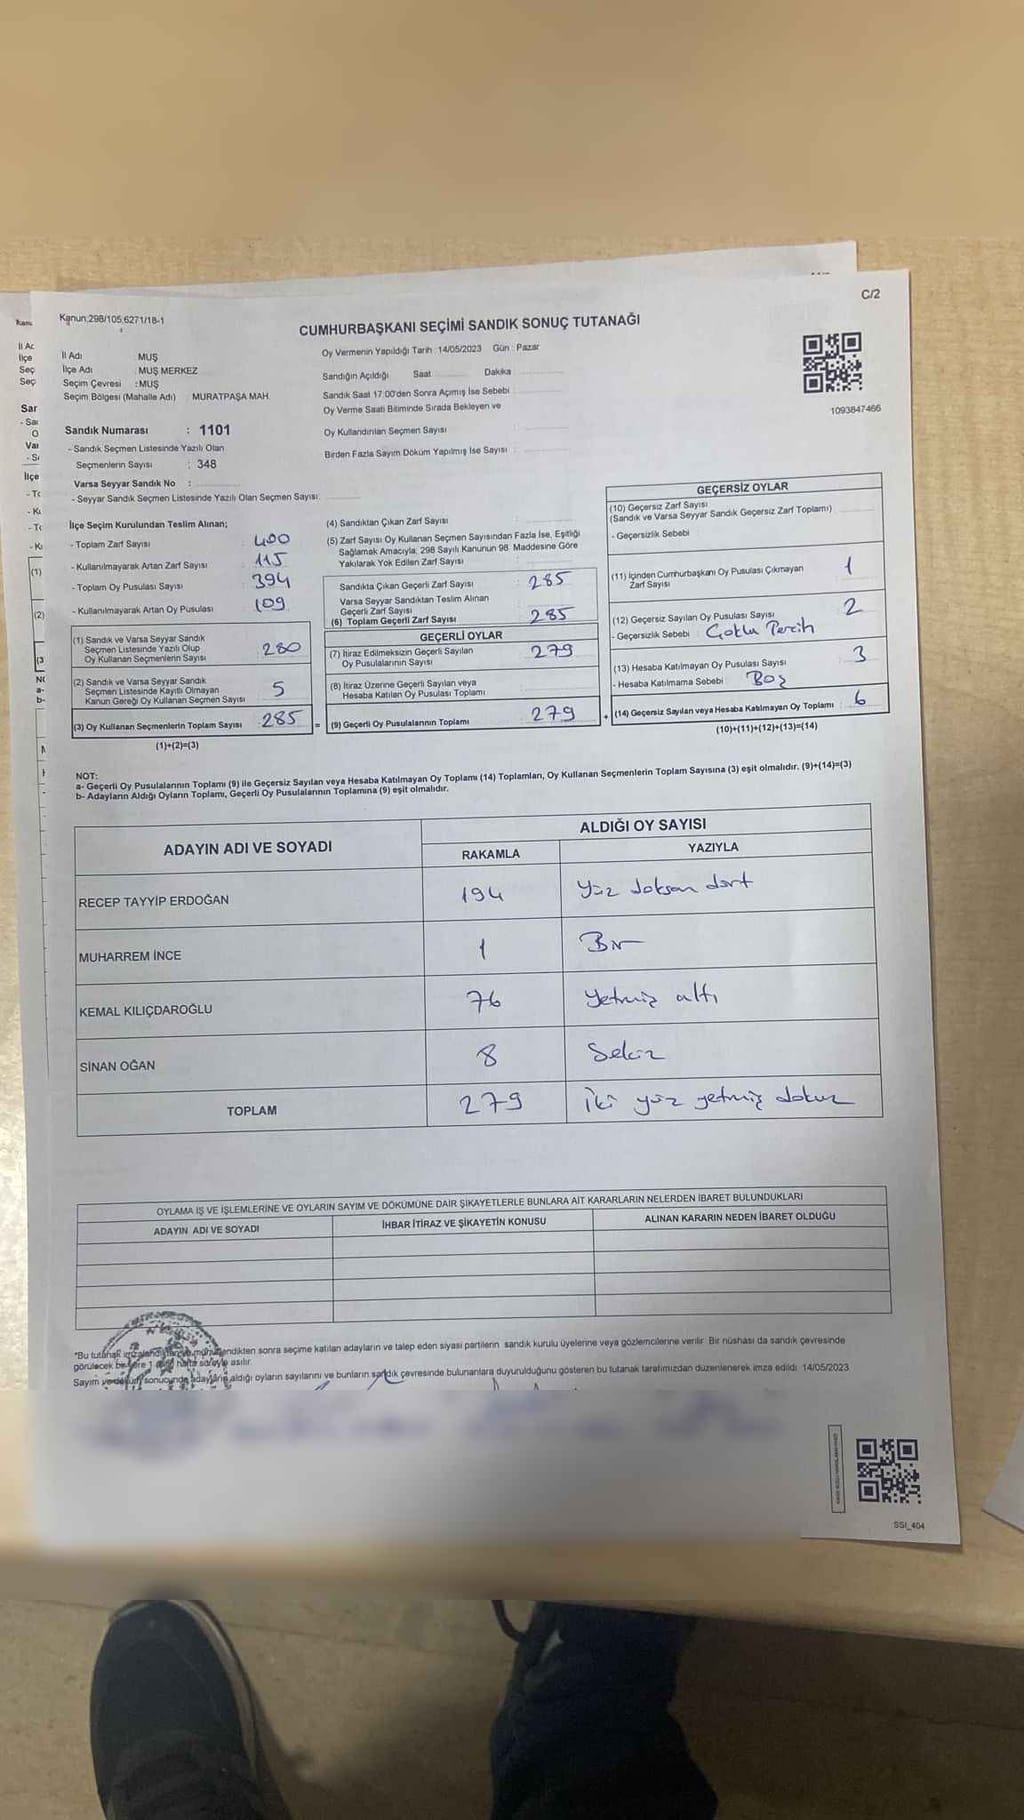 C/2
Kanun:298/105;6271/18-1
CUMHURBAŞKANI SEÇİMİ SANDIK SONUÇ TUTANAĞI
İl Adı : MUŞ
İlçe Adı : MUŞ MERKEZ
Seçim Çevresi : MUŞ
Seçim Bölgesi (Mahalle Adı) MURATPAŞA MAH.
Oy Vermenin Yapıldığı Tarih :14/05/2023 Gün : Pazar
Sandığın Açıldığı Saat Dakika
Sandık Saat 17:00'den Sonra Açımış İse Sebebi
Oy Verme Saati Bitiminde Sırada Bekleyen ve
Oy Kullandırılan Seçmen Sayısı :
Birden Fazla Sayım Döküm Yapılmış İse Sayısı :
1093847466
Sandık Numarası : 1101
- Sandık Seçmen Listesinde Yazılı Olan
Seçmenlerin Sayısı : 348
Varsa Seyyar Sandık No :
- Seyyar Sandık Seçmen Listesinde Yazılı Olan Seçmen Sayısı:
İlçe Seçim Kurulundan Teslim Alınan;
- Toplam Zarf Sayısı : 400
- Kullanılmayarak Artan Zarf Sayısı : 115
- Toplam Oy Pusulası Sayısı : 394
- Kullanılmayarak Artan Oy Pusulası : 109
(1) Sandık ve Varsa Seyyar Sandık
Seçmen Listesinde Yazılı Olup
Oy Kullanan Seçmenlerin Sayısı : 280
(2) Sandık ve Varsa Seyyar Sandık
Seçmen Listesinde Kayıtlı Olmayan
Kanun Gereği Oy Kullanan Seçmen Sayısı 5
(3) Oy Kullanan Seçmenlerin Toplam Sayısı : 285
(1)+(2)=(3)
(4) Sandıktan Çıkan Zarf Sayısı :
(5) Zarf Sayısı Oy Kullanan Seçmen Sayısından Fazla İse, Eşitliği
Sağlamak Amacıyla; 298 Sayılı Kanunun 98. Maddesine Göre
Yakılarak Yok Edilen Zarf Sayısı
Sandıkta Çıkan Geçerli Zarf Sayısı : 285
Varsa Seyyar Sandıktan Teslim Alınan
Geçerli Zarf Sayısı
(6) Toplam Geçerli Zarf Sayısı : 285
GEÇERLİ OYLAR
(7) İtiraz Edilmeksizin Geçerli Sayılan
Oy Pusulalarının Sayısı : 279
(8) İtiraz Üzerine Geçerli Sayılan veya
Hesaba Katılan Oy Pusulası Toplamı
= (9) Geçerli Oy Pusulalarının Toplamı : 279
GEÇERSİZ OYLAR
(10) Geçersiz Zarf Sayısı
(Sandık ve Varsa Seyyar Sandık Geçersiz Zarf Toplamı)
- Geçersizlik Sebebi
(11) İçinden Cumhurbaşkanı Oy Pusulası Çıkmayan
Zarf Sayısı 1
(12) Geçersiz Sayılan Oy Pusulası Sayısı 2
- Geçersizlik Sebebi : Çoklu Tercih
(13) Hesaba Katılmayan Oy Pusulası Sayısı 3
- Hesaba Katılmama Sebebi : Boş
+ (14) Geçersiz Sayılan veya Hesaba Katılmayan Oy Toplamı : 6
(10)+(11)+(12)+(13)=(14)
NOT:
a- Geçerli Oy Pusulalarının Toplamı (9) ile Geçersiz Sayılan veya Hesaba Katılmayan Oy Toplamı (14) Toplamları, Oy Kullanan Seçmenlerin Toplam Sayısına (3) eşit olmalıdır. (9)+(14)=(3)
b- Adayların Aldığı Oyların Toplamı, Geçerli Oy Pusulalarının Toplamına (9) eşit olmalıdır.
ADAYIN ADI VE SOYADI ALDIĞI OY SAYISI
RAKAMLA YAZIYLA
RECEP TAYYİP ERDOĞAN 194 Yüz doksan dört
MUHARREM İNCE 1 Bir
KEMAL KILIÇDAROĞLU 76 Yetmiş altı
SİNAN OĞAN 8 Sekiz
TOPLAM 279 İki yüz yetmiş dokuz
OYLAMA İŞ VE İŞLEMLERİNE VE OYLARIN SAYIM VE DÖKÜMÜNE DAİR ŞİKAYETLERLE BUNLARA AİT KARARLARIN NELERDEN İBARET BULUNDUKLARI
ADAYIN ADI VE SOYADI İHBAR İTİRAZ VE ŞİKAYETİN KONUSU ALINAN KARARIN NEDEN İBARET OLDUĞU
*Bu tutanak sonra seçime katılan adayların ve talep eden siyasi partilerin sandık kurulu üyelerine veya gözlemcilerine verilir. Bir nüshası da sandık çevresinde
görülecek bir yere 1 hafta süreyle asılır.
Sayım ve döküm sonucunda adayların aldığı oyların sayılarını ve bunların sandık çevresinde bulunanlara duyurulduğunu gösteren bu tutanak tarafımızdan düzenlenerek imza edildi. 14/05/2023
SSI_404